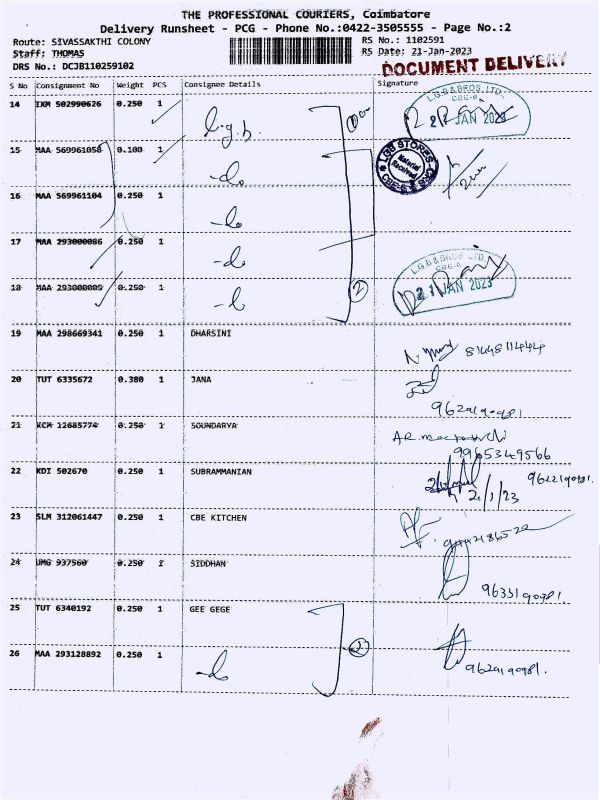 THE PROFESSIONAL COURIERS, Coimbatore
Delivery Runsheet - PCG - Phone No.:0422-3505555 - Page No.:2
Route: SIVASSAKTHI COLONY RS No.: 1102591
Staff: THOMAS RS Date: 21-Jan-2023
DRS No.: DCJB110259102
DOCUMENT DELIVERY
S No Consignment No Weight PCS Consignee Details Signature
14 IXM 502990626 0.250 1 l.g.b.
L.G.B & BROS. LTD.,
CBE-6.
21 JAN 2023
15 MAA 569961058 0.100 1 -do
LGB STORES
Material Received
CBE-6
16 MAA 569961104 0.250 1 -do
17 MAA 293000086 0.250 1 -do
L.G.B & BROS. LTD.,
CBE-6
18 MAA 293000089 0.250 1 -do
21 JAN 2023
2
19 MAA 298669341 0.250 1 DHARSINI
20 TUT 6335672 0.380 1 JANA
21 KCM 12685774 0.250 1 SOUNDARYA
9965349566
22 KDI 502670 0.250 1 SUBRAMMANIAN
21/1/23
23 SLM 312061447 0.250 1 CBE KITCHEN
24 UMG 937560 0.250 1 SIDDHAN
25 TUT 6340192 0.250 1 GEE GEGE
2
26 MAA 293128892 0.250 1 -do